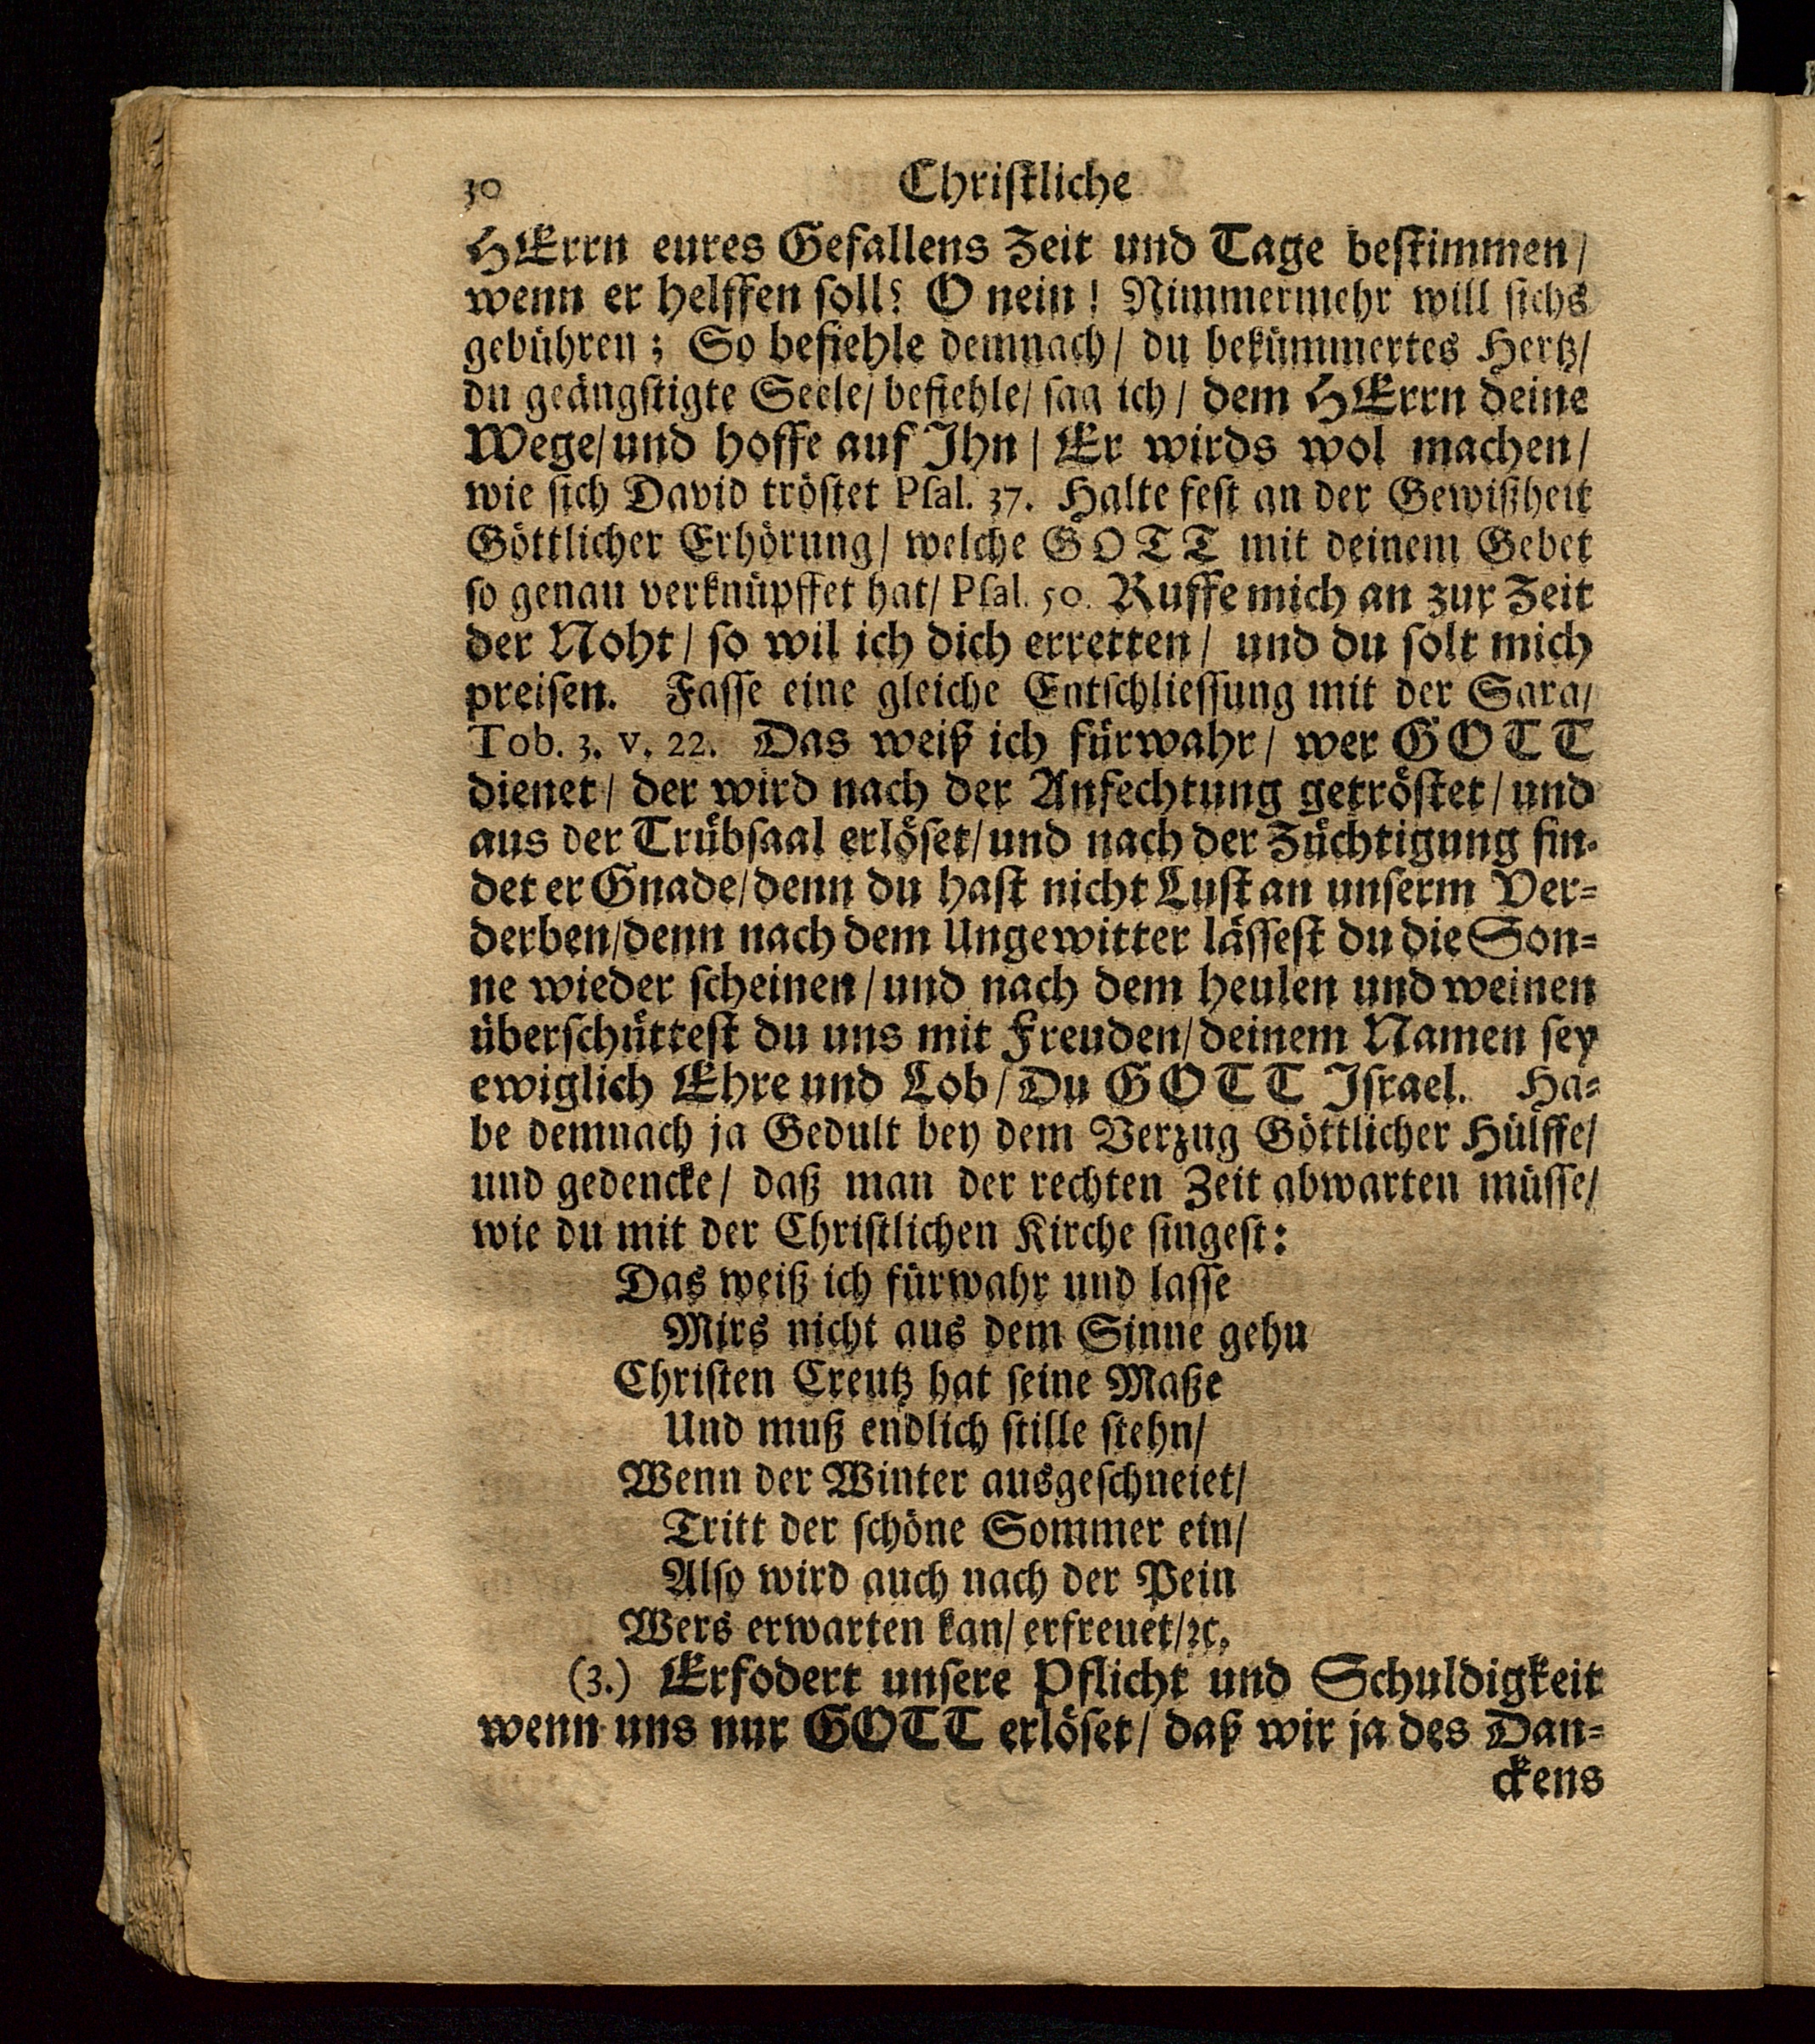 30 Christliche
HErrn eures Gefallens Zeit und Tage bestimmen/
wenn er helffen soll? O nein! Nimmermehr will sichs
gebühren; So befiehle demnach/ du bekümmertes Hertz/
du geängstigte Seele/ befiehle/ sag ich/ dem HErrn deine
Wege/ und hoffe auf Ihn/ Er wirds wol machen/
wie sich David tröstet Psal. 37. Halte fest an der Gewißheit
Göttlicher Erhörung/ welche GOTT mit deinem Gebet
so genau verknüpffet hat/ Psal. 50. Ruffe mich an zur Zeit
der Noht/ so wil ich dich erretten/ und du solt mich
preisen. Fasse eine gleiche Entschliessung mit der Sara/
Tob. 3. v. 22. Das weiß ich fürwahr/ wer GOTT
dienet/ der wird nach der Anfechtung getröstet/ und
aus der Trübsaal erlöset/ und nach der Züchtigung fin-
det er Gnade/ denn du hast nicht Lust an unserm Ver-
derben/ denn nach dem Ungewitter lässest du die Son-
ne wieder scheinen/ und nach dem heulen und weinen
überschüttest du uns mit Freuden/ deinem Namen sey
ewiglich Ehre und Lob/ Du GOTT Israel. Ha-
be demnach ja Gedult bey dem Verzug Göttlicher Hülffe/
und gedencke/ daß man der rechten Zeit abwarten müsse/
wie du mit der Christlichen Kirche singest:
Das weiß ich fürwahr und lasse
Mirs nicht aus dem Sinne gehn
Christen Creutz hat seine Maße
Und muß endlich stille stehn/
Wenn der Winter ausgeschneiet/
Tritt der schöne Sommer ein/
Also wird auch nach der Pein
Wers erwarten kan/ erfreuet/ ꝛc.
(3.) Erfodert unsere Pflicht und Schuldigkeit
wenn uns nur GOTT erlöset/ daß wir ja des Dan-
ckens